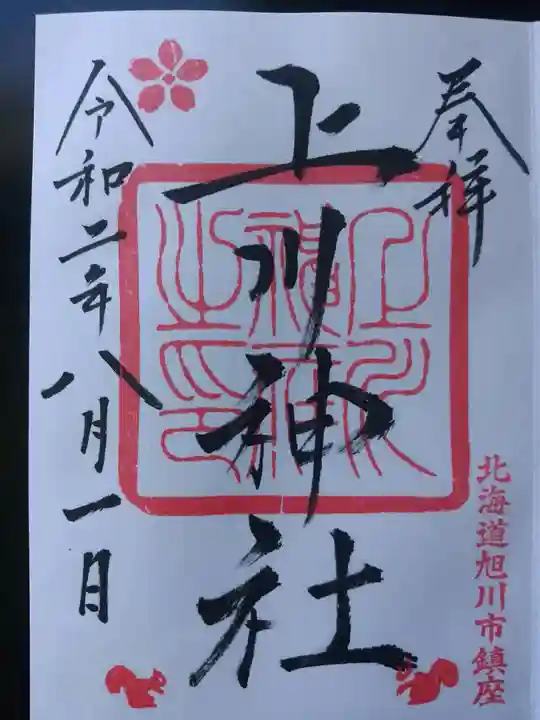 奉拝
上川神社
令和二年八月一日
北海道旭川市鎮座